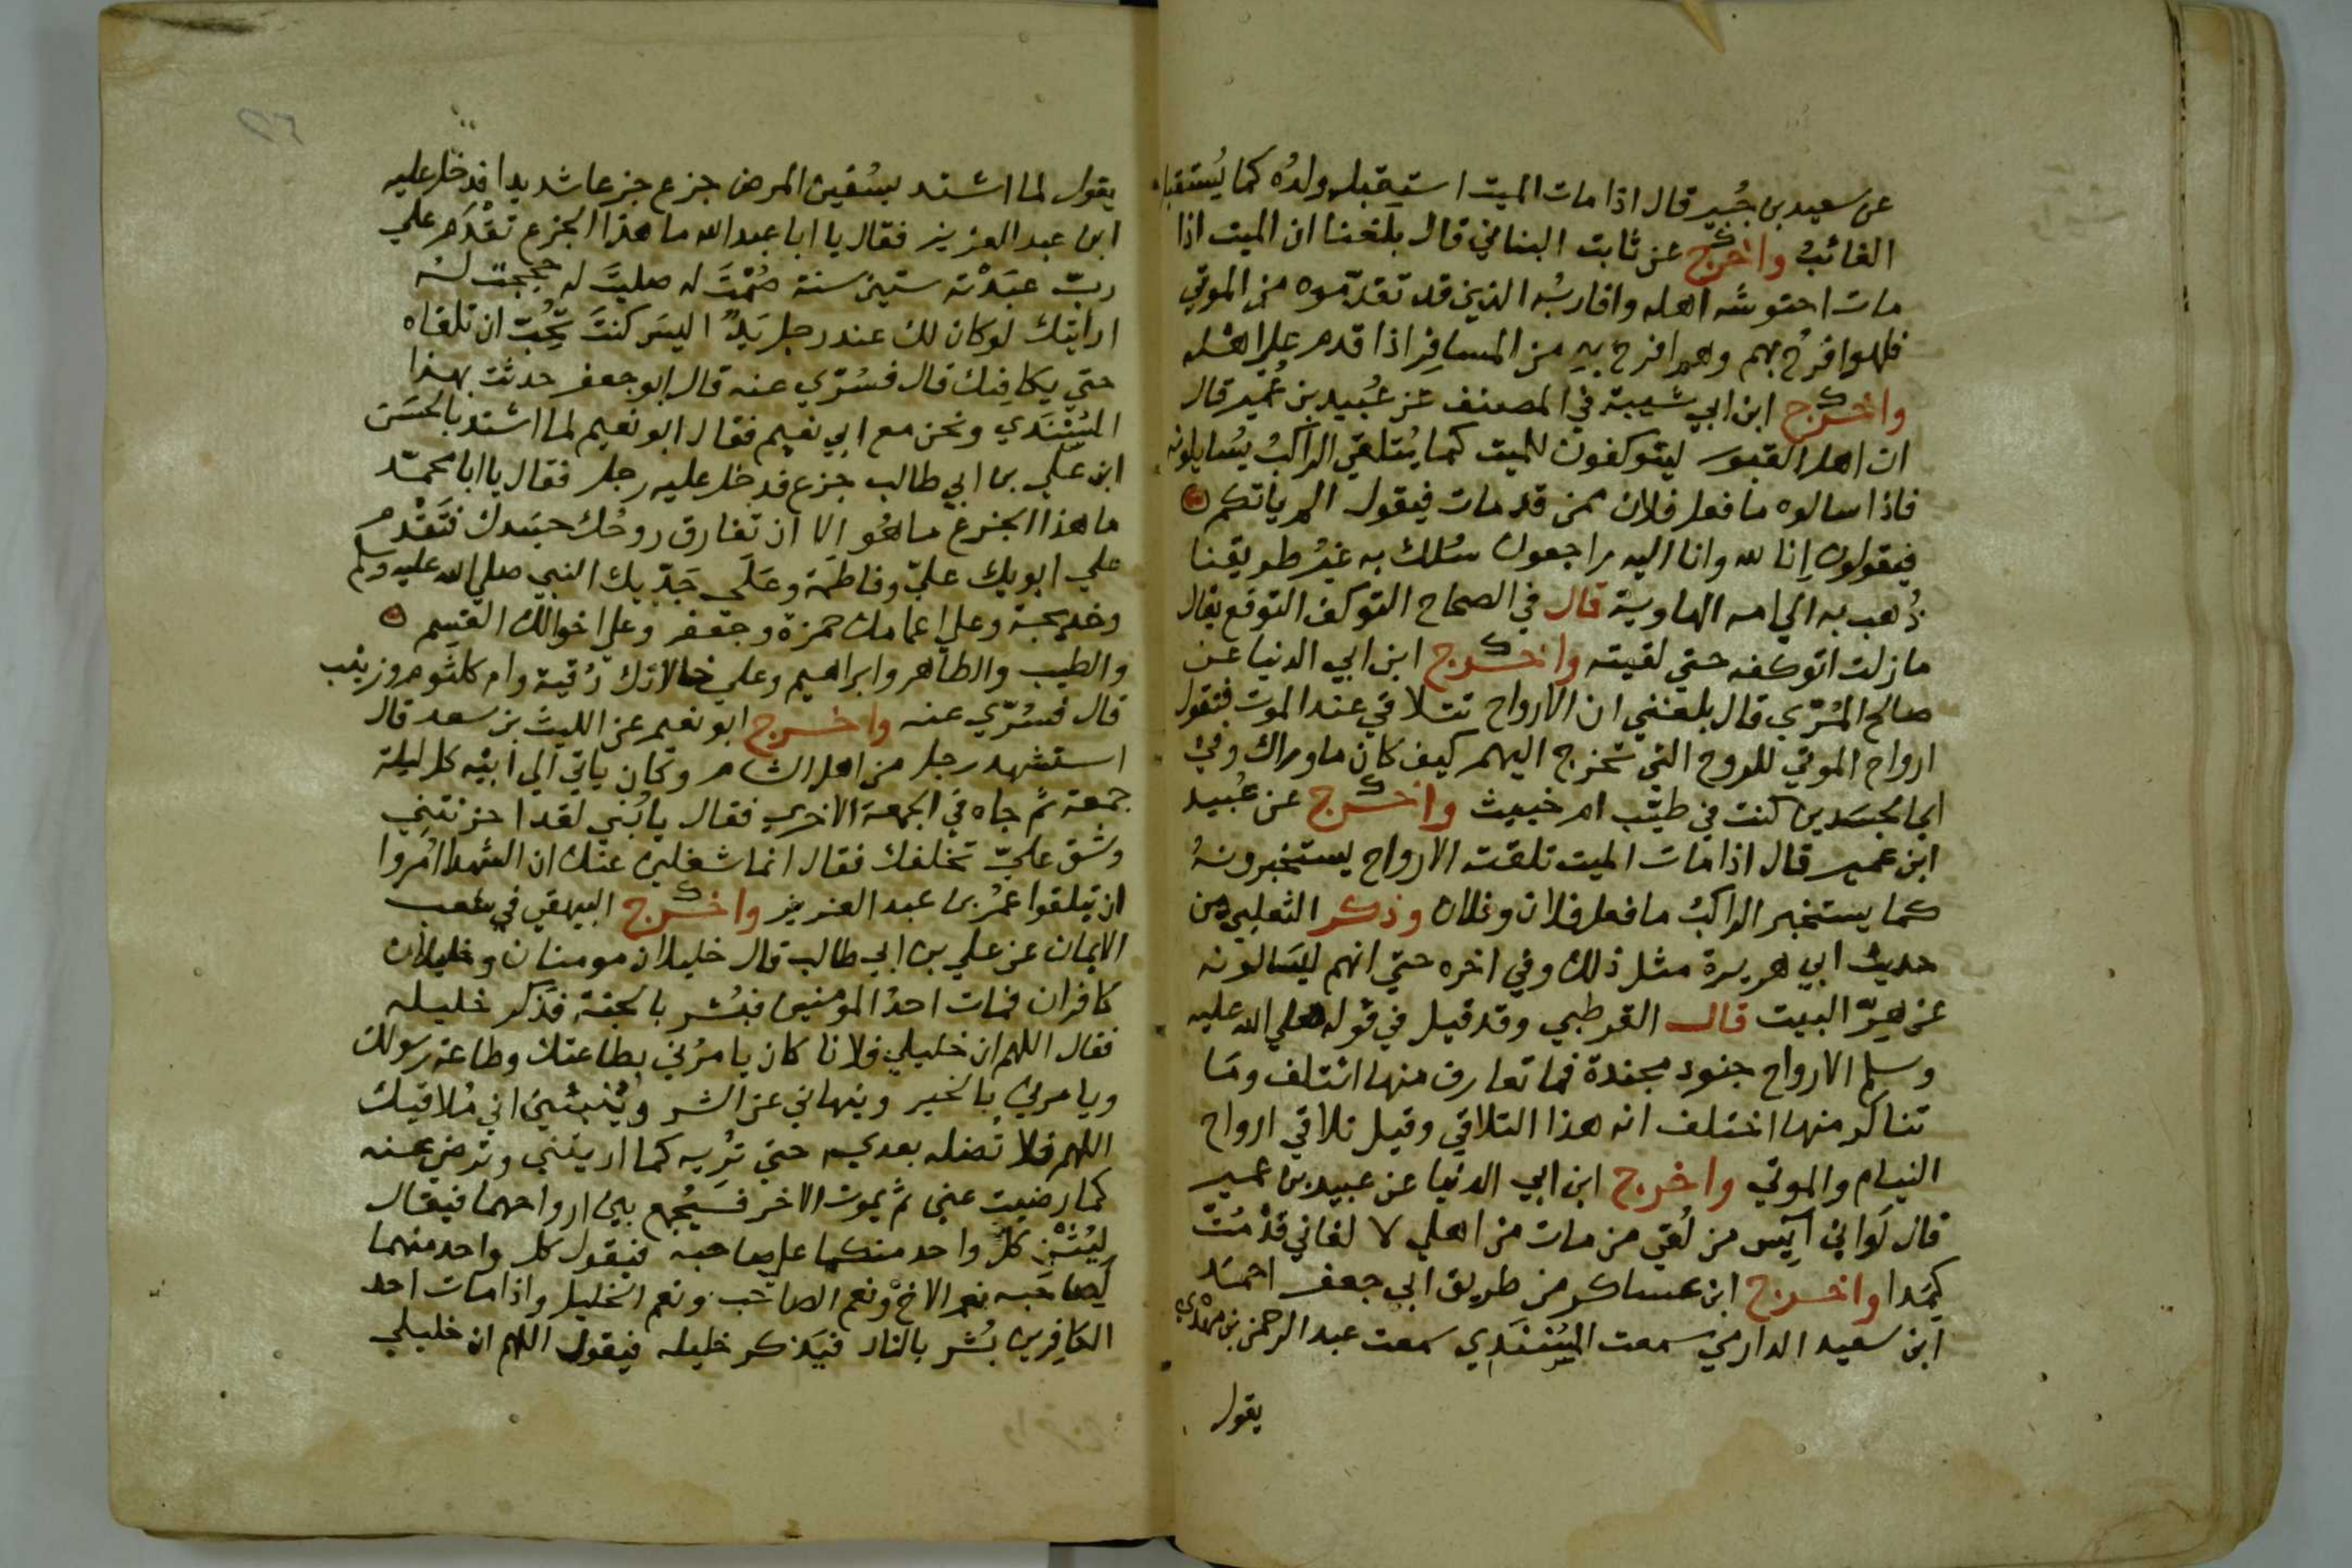 عن سعيد بن جُبير قال اذا مات الميت استقبله ولدُه كما يُستقبل
الغائبُ واخرج عن ثابت البناني قال بلغنا ان الميت اذا
مات احتوشه اهله واقاربُه الذين قد تقدّموه من الموتي
فلهوا فرُح بهم وهم افرح به من المسافِر اذا قدم علي اهله
واخرج ابن ابي شيبة في المصنف عن عُبيد بن عُمير قال
ان اهل القبور ليتوكفون للميت كما يُتلقي الراكبُ يُسايلونه
فاذا سالوه ما فعل فلان ممن قد مات فيقول الم ياتكم
فيقولون اِنا لله وانا اليه راجعون سُلك به غيرُ طريقنا
ذُهب به الي امه الهاوية قال في الصحاح التوكف التوقع يقال
ما زلت اتوكفه حتي لقيته واخرج ابن ابي الدنيا عن
صالح المُرّي قال بلغني ان الارواح تتلاقي عند الموت فتقول
ارواح الموتي للروح التي تخرج اليهم كيف كان ماوراك وفي
اي الجسدين كنت في طيّب ام خبيث واخرج عن عُبيد
ابن عمير قال اذا مات الميت تلقته الارواح يستخبرونهُ
كما يستخبر الراكبُ ما فعل فلان وفلان وذكر الثعلبي من
حديث ابي هريرة مثل ذلك وفي اخره حتي انهم ليَسالونه
عن هِرّ البيت قال القرطبي وقد قيل في قوله صلي الله عليه
وسلم الارواح جنود مجندة فما تعارف منها ائتلف ومَا
تناكر منها اختلف انه هذا التلاقي وقيل تلاقي ارواح
النيام والموتي واخرج ابن ابي الدنيا عن عبيد بن عمير
قال لَو اني آيس من لُقي من مات من اهلي لا لفاني قد مُتّ
كَمَدا واخرج ابن عساكر من طريق ابي جعفر احمَد
ابن سعيد الدارمي سمعت المُسْنَدي سمعت عبد الرحمن بن مهْدي
يقول
يقول لما اشتد بسُفين المرض جزع جزعا شديدا فدخل عليه
ابن عبد العزيز فقال يا ابا عبد الله ما هذا الجزع تقْدَم علي
ربّ عَبَدْته ستين سنة صُمْتَ له صليتَ له حججت له
ارايتك لو كان لك عند رجل يَدٌ اليس كنتَ تُحِبّ ان تلقاه
حتي يكافِئك قال فسُرّي عنه قال ابو جعفر حدثت بهذا
المُسْنَدي ونحن مع ابي نعيم فقال ابو نعيم لما اشتد بالحسَن
ابن علي بن ابي طالب جزع فدخل عليه رجل فقال يا ابا محمّد
ما هذا الجزع ما هُو الا ان تفارق روحُك جسَدك فتَقْدم
علي ابويك عليّ وفاطمة وعَلَى جَدّيك النبي صلي الله عليه وسلم
وخديجة وعلي اعمامك حمزة وجعفر وعلي اخوالك القسِم
والطيب والطاهر وابراهيم وعلي خالاتك رُقية وام كلثوم وزينب
قال فسُرّي عنه واخرج ابو نعيم عن الليث بن سعد قال
استشهد رجل من اهل الشام وكان ياتي الي ابيه كل ليلة
جمعة ثم جاه في الجمعة الاخري فقال يا بُني لقد احزنتني
وشق عليّ تخلفك فقال انما شغلني عنك ان الشهدا اُمروا
ان يتلقوا عُمَر بن عبد العزيز واخرج البيهقي في شعب
الايمان عن علي بن ابي طالب قال خليلان مومنان وخليلان
كافران فمات احدُ المؤمنين فبُشر بالجنة فذكر خليله
فقال اللهم ان خليلي فلانا كان يامرُني بطاعتك وطاعة رسولك
ويامرني بالخير وينهاني عن الشر ويُنبئني اني مُلاقيك
اللهم فلا تُضله بعدي حتي تُرِيه كما اريتني وترضي عنه
كما رضيت عني ثم يموت الاخر فيَجُمع بين ارواحهما فيقال
ليُثْنِ كلّ واحد منكما علي صاحبه فيقول كل واحد منهما
لِصَاحَبه نعم الاخُ ونعم الصاحب ونعم الخليل واذا مات احد
الكافِرين بُشر بالنار فيَذكر خليله فيقول اللهم ان خليلي